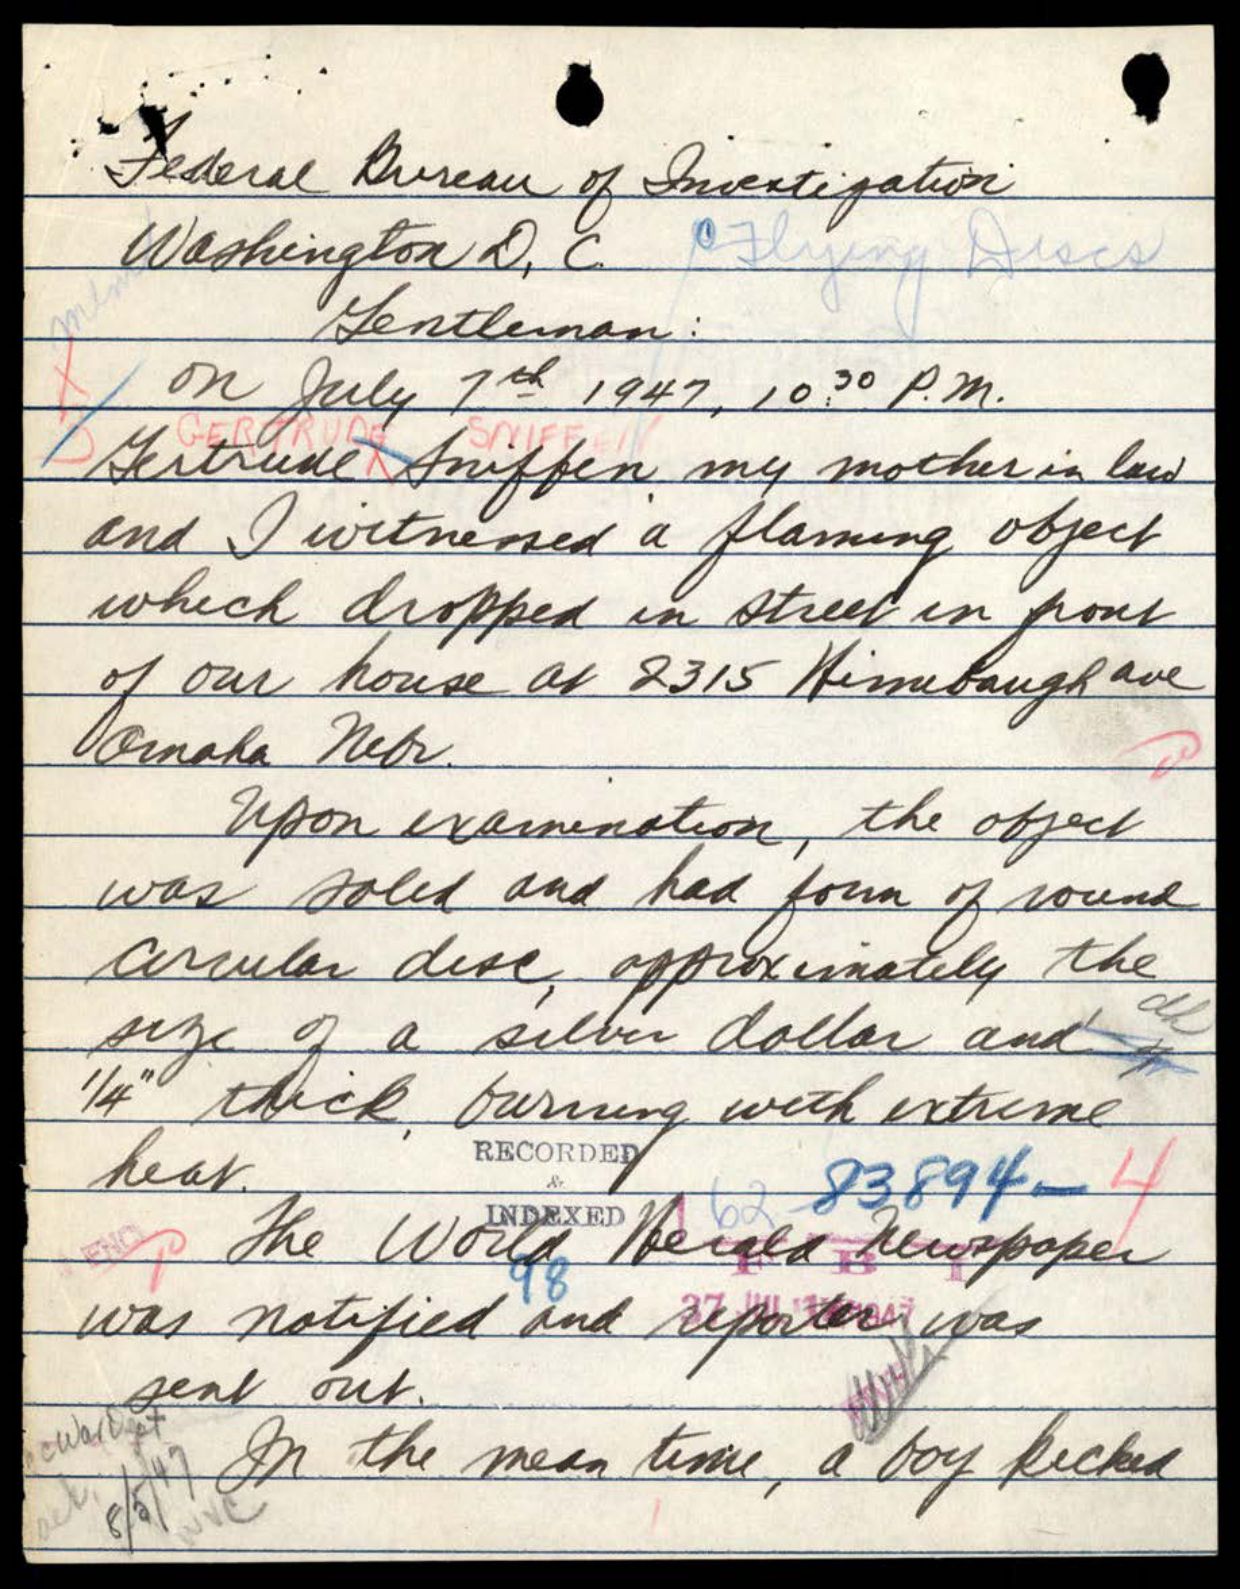 Federal Bureau of Investigation
Washington D. C.
Flying Discs
memo
Gentleman:
on July 7th 1947, 10:30 P.M.
GERTRUDE SNIFFEN
Gertrude Sniffen my mother in law
and I witnessed a flaming object
which dropped in street in front
of our house at 2315 Himebaugh ave
Omaha Nebr.
Upon examination, the object
was solid and had form of round
circular disc, approximately the
size of a silver dollar and
1/4" thick, burning with extreme
heat.
RECORDED
&
INDEXED
98
62-83894-4
F B I
The World Herald Newspaper
was notified and reporter was
sent out.
cc War Dept
8/5/47
In the mean time, a boy kicked